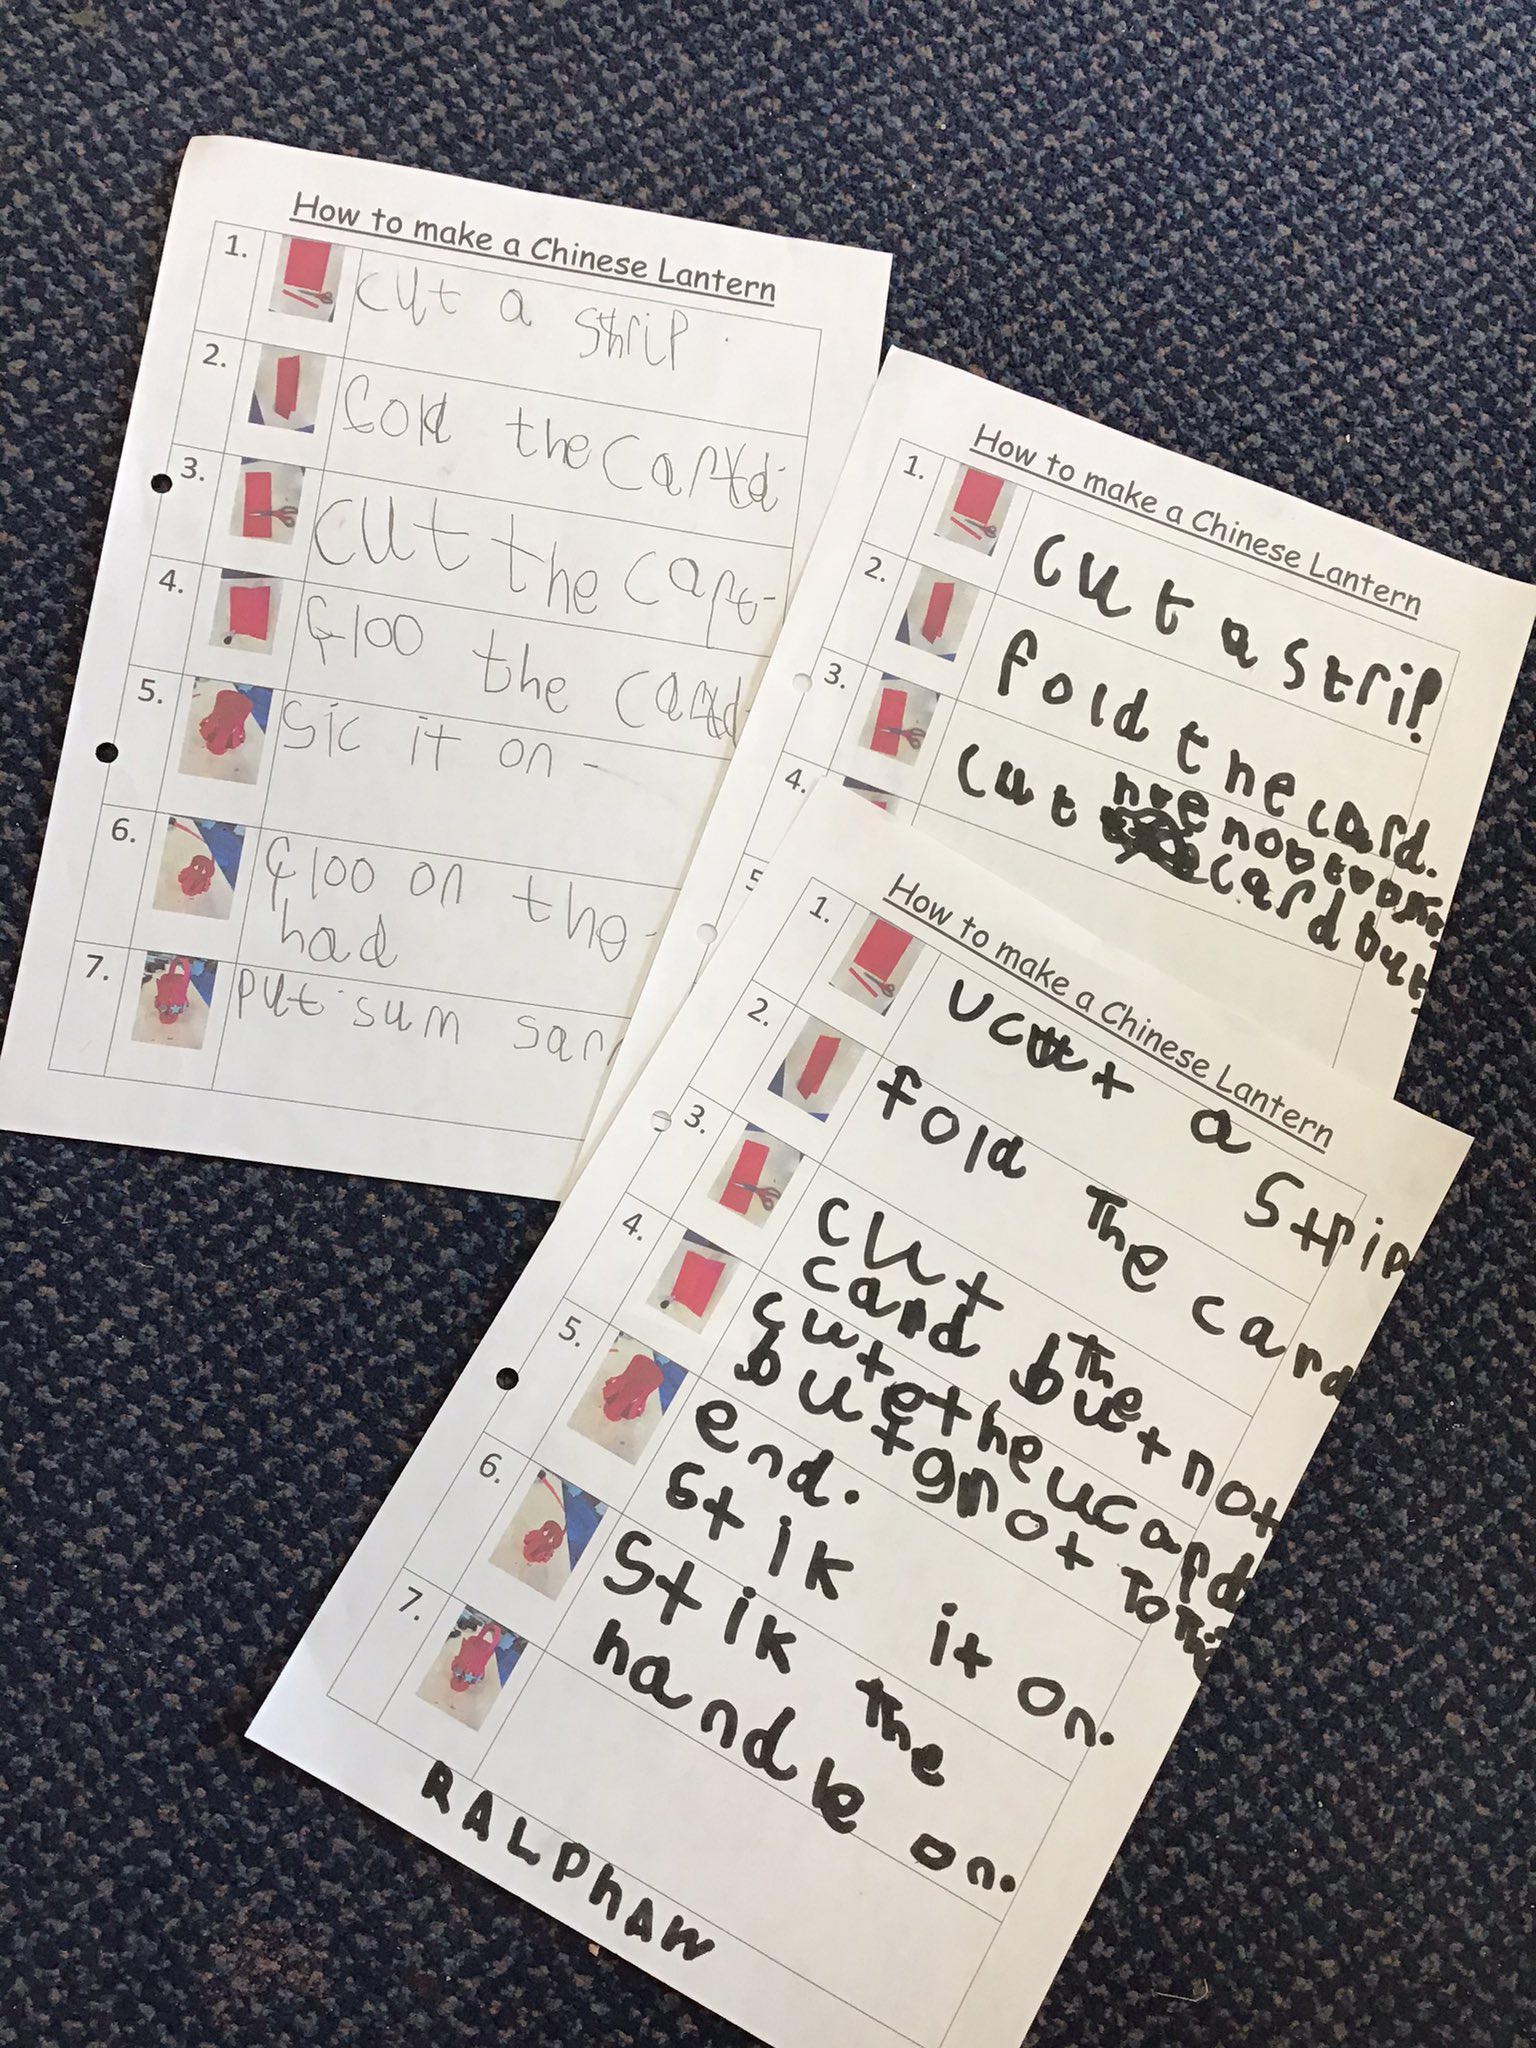 How to make a Chinese Lantern
1.
cut a strip.
2.
fold the card.
3.
cut the
4.
the card
5.
sic it on
6.
on the
had
7.
put sum
How to make a Chinese Lantern
1.
cut a strip
2.
fold the card.
3.
cut
card but
not
4.
5
How to make a Chinese Lantern
1.
a strip
2.
fold the card
3.
cut the
card but not
4.
card
but not
5.
end.
stik it on.
6.
stik the
handle on.
7.
RALPh AW